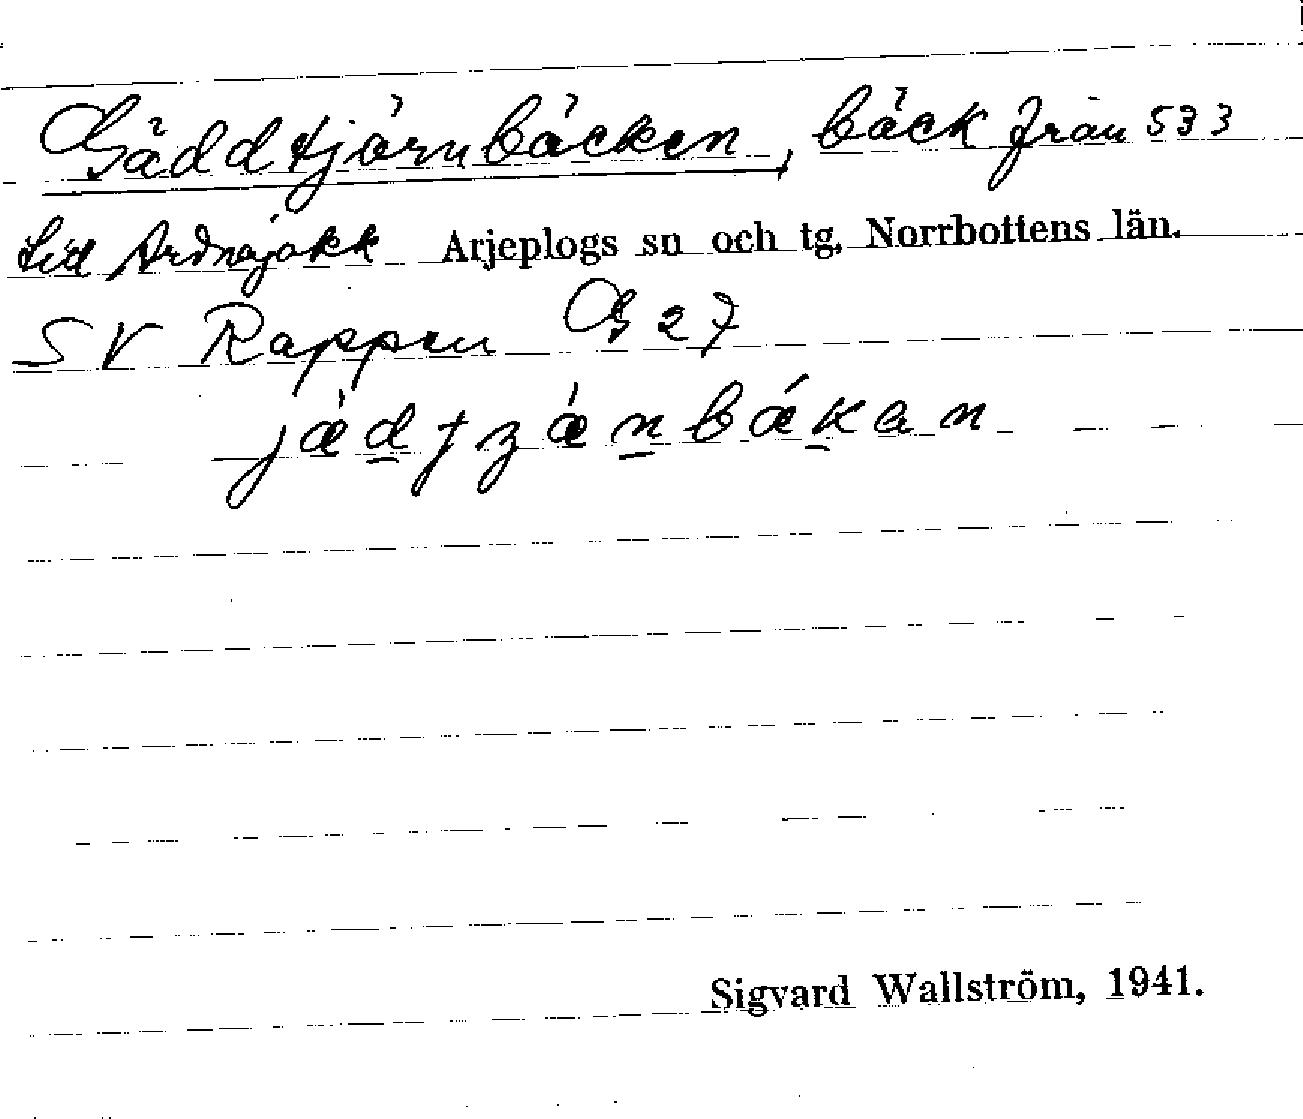 Gäddtjörnbäcken, bäck från 533
till Ardnajåkk Arjeplogs sn och tg, Norrbottens län.
SV Rappen G 27
Sigvard Wallström, 1941.